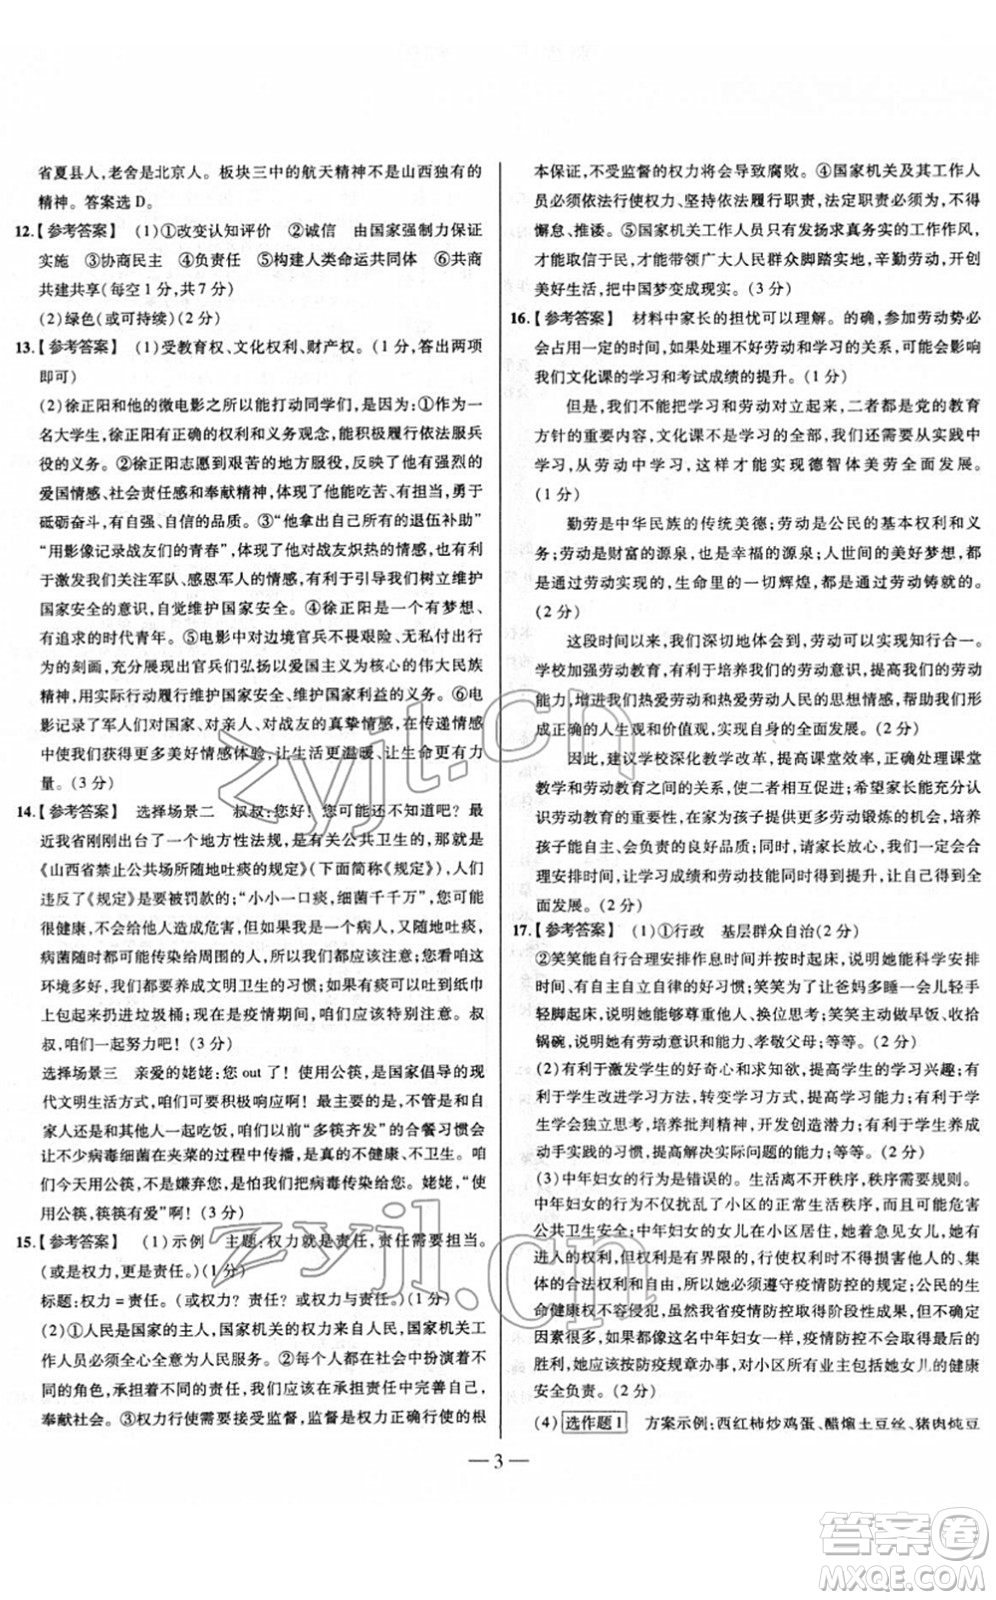 省夏县人,老舍是北京人。板块三中的航天精神不是山西独有的
精神。答案选D。
12.【参考答案】 (1)①改变认知评价 ②诚信 由国家强制力保证
实施 ③协商民主 ④负责任 ⑤构建人类命运共同体 ⑥共商
共建共享(每空1分,共7分)
(2)绿色(或可持续)(2分)
13.【参考答案】 (1)受教育权、文化权利、财产权。(1分,答出两项
即可)
(2)徐正阳和他的微电影之所以能打动同学们,是因为:①作为一
名大学生,徐正阳有正确的权利和义务观念,能积极履行依法服兵
役的义务。②徐正阳志愿到艰苦的地方服役,反映了他有强烈的
爱国情感、社会责任感和奉献精神,体现了他能吃苦、有担当,勇于
砥砺奋斗,有自强、自信的品质。③“他拿出自己所有的退伍补助”
“用影像记录战友们的青春”,体现了他对战友炽热的情感,也有利
于激发我们关注军队、感恩军人的情感,有利于增强我们维护
国家安全的意识,自觉维护国家安全。④徐正阳是一个有梦想、
有追求的时代青年。⑤电影中对边境官兵不畏艰险、无私付出
的刻画,充分展现出官兵们弘扬以爱国主义为核心的伟大民族
精神,用实际行动履行维护国家安全、维护国家利益的义务。⑥电
影记录了军人们对国家、对亲人、对战友的真挚情感,在传递情感
中使我们获得更多美好情感体验,让生活更温暖、让生命更有力
量。(3分)
14.【参考答案】 选择场景二 叔叔:您好!您可能还不知道吧?最
近我省刚刚出台了一个地方性法规,是有关公共卫生的,就是
《山西省禁止公共场所随地吐痰的规定》(下面简称《规定》),人们
违反了《规定》是要被罚款的;“小小一口痰,细菌千千万”,为了咱
们的健康,不会给他人造成危害,但是我们都应该清楚,这口痰的
病菌随时都可能会传染给周围的人,所以我们都应该爱护咱们的
环境多好!我们要养成文明卫生的习惯;如果有痰可以吐到纸巾
上包起来扔进垃圾桶;现在是疫情期间,咱们应该特别注意。叔
叔,咱们一起努力吧!(3分)
选择场景三 亲爱的姥姥:您out了!使用公筷,是国家倡导的现
代文明生活方式,咱们可要积极响应啊!最主要的是,不管是和自
家人还是和其他人一起吃饭,咱们以前“多筷齐发”的合餐习惯会
让不少病毒细菌在夹菜的过程中传播,真的不健康、不卫生。
咱们今天用公筷,不是嫌弃您,是怕我们把病毒传染给您。姥姥,“使
用公筷,筷筷有爱”啊!(3分)
15.【参考答案】 (1)示例 主题:权力就是责任,责任需要担当。
(或是权力,更是责任。)(1分)
标题:权力=责任。(或权力?责任?或权力与责任。)(1分)
(2)①人民是国家的主人,国家机关的权力来自人民,国家机关工
作人员必须全心全意为人民服务。②每个人都在社会中扮演着不
同的角色,承担着不同的责任,我们应该具有责任意识,服务和
奉献社会。③权力行使需要接受监督,监督是权力正确行使的根
本保证,不受监督的权力将会导致腐败。④国家机关及其工作人
员必须依法行使权力、坚持依法履行职责,法定职责必须为,不得
懈怠、推诿。⑤国家机关工作人员只有发扬求真务实的工作作风,
才能取信于民,从而带领广大人民群众脚踏实地,辛勤劳动,开创
美好生活,把中国梦变成现实。(3分)
16.【参考答案】 材料中家长的担忧可以理解。的确,参加劳动势必
会占用一定的时间,如果处理不好劳动和学习的关系,可能会影响
我们文化课的学习和考试成绩的提升。(1分)
但是,我们不能把学习和劳动对立起来,二者都是党的教育
方针的重要内容,文化课不是学习的全部,我们应该从实践中
学习,从劳动中学习,这样才能实现德智体美劳全面发展。
(1分)
勤劳是中华民族的传统美德;劳动是公民的基本权利和义
务;劳动是财富的源泉,也是幸福的源泉;人世间的美好梦想,都
是通过劳动实现的,生命里的一切辉煌,都是通过劳动铸就的。
(2分)
这段时间以来,我们深切地体会到,劳动可以实现知行合一。
学校加强劳动教育,有利于培养我们的劳动意识,提高我们的劳动
能力,增进我们热爱劳动和热爱劳动人民的思想情感,帮助我们形
成正确的人生观和价值观,实现自身的全面发展。(2分)
因此,建议学校深化教学改革,提高课堂效率,正确处理课堂
教学和劳动教育之间的关系;希望家长能够转变思想观念,充分认
识劳动教育的重要性,为孩子提供更多劳动锻炼的机会,培养
孩子能主动负责的良好品质;同时,请家长放心,我们一定会合理
安排时间,让学习成绩和劳动技能同时得到提高,实现自身的全面
发展。(2分)
17.【参考答案】 (1)①行政 基层群众自治(2分)
②笑笑能自行合理安排作息时间并按时起床,说明她能科学安排
时间,有自主自立自律的良好习惯;笑笑为了让爸妈多睡一会儿轻手
轻脚起床,说明她能关心父母、换位思考;笑笑主动做早饭、收拾
锅碗,说明她有劳动观念和劳动能力、孝敬父母;等等。(2分)
(2)有利于激发学生的好奇心和求知欲,提高学生的学习兴趣;有
利于学生改进学习方法,转变学习方式,提高学习效率;有利于学
生学会独立思考,培养批判精神,开发创造潜力;有利于学生养成
动手实践的习惯,提高解决实际问题的能力;等等。(2分)
(3)中年妇女的行为是错误的。社会生活离不开秩序,秩序需要规则,
中年妇女的行为不仅扰乱了小区的正常生活秩序,也威胁到了
公共卫生安全;中年妇女与女儿在小区居住,她着急见女儿,她有
进入小区的权利,但是权利是有界限的,行使权利时不得损害他人的、集
体的合法权利和自由,所以她必须遵守疫情防控的规定;公民的生
命健康权不容侵犯,虽然我省疫情防控取得阶段性成果,但是如果
放松要求,如果都像这名中年妇女一样,疫情防控就不会取得最后的
胜利,她应该按防疫规章办事,对小区所有业主包括她女儿的健康
安全负责。(2分)
(4)选作题1 方案示例:西红柿炒鸡蛋、醋熘土豆丝、猪肉炖豆
— 3 —
zyjl.cn
zyjl.cn
答案卷
MXQE.COM